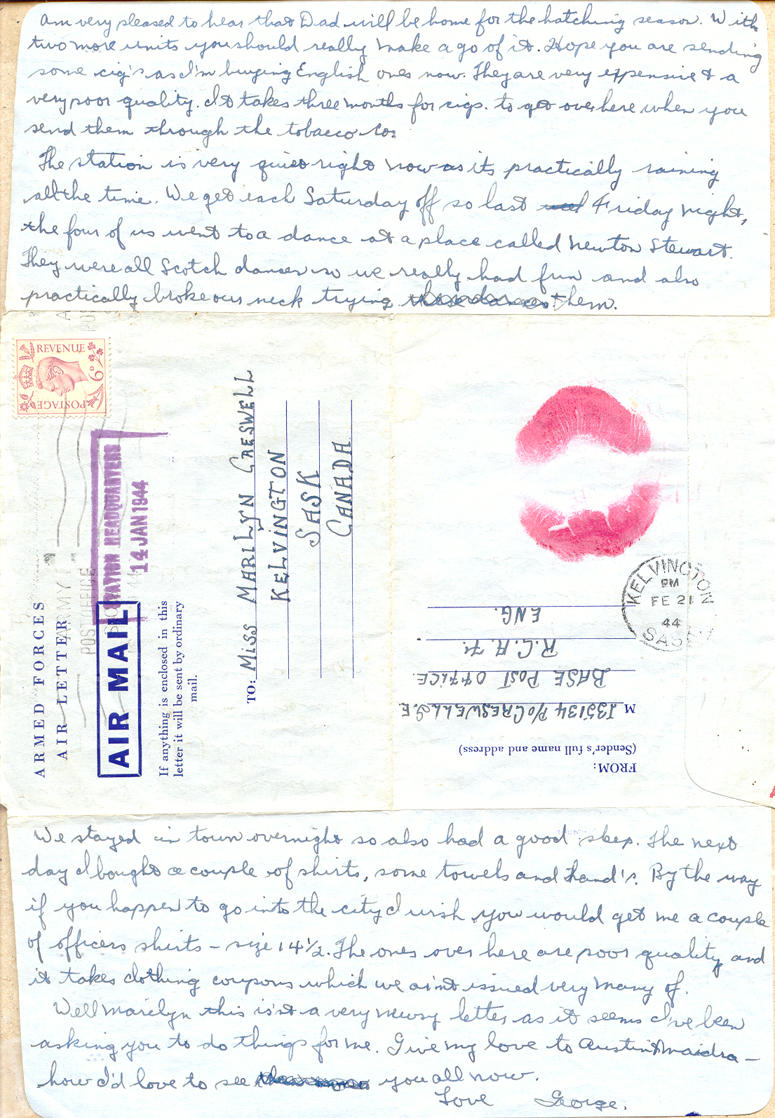 am very pleased to hear that Dad will be home for the hatching season. With
two more units you should really make a go of it. Hope you are sending
some cig's as I'm buying English ones now. They are very expensive & a
very poor quality. It takes three months for cigs. to get over here when you
send them through the tobacco Co.
The station is very quiet right now as its practically raining
all the time. We get each Saturday off so last Friday night,
the four of us went to a dance at a place called Newton Stewart.
They were all Scotch dances so we really had fun and also
practically broke our neck trying them.
REVENUE
6D
POSTAGE
ARMED FORCES
AIR LETTER
AIR MAIL
STATION HEADQUARTERS
14 JAN 1944
POST OFFICE
If anything is enclosed in this
letter it will be sent by ordinary
mail.
TO: Miss MARILYN CRESWELL
KELVINGTON
SASK
CANADA
KELVINGTON
PM
FE 21
44
SASK
FROM:
(Sender's full name and address)
M I35134 P/O CRESWELL G.E
BASE POST OFFICE
ENG.
We stayed in town overnight so also had a good sleep. The next
day I bought a couple of shirts, some towels and hand's. By the way
if you happen to go into the city I wish you would get me a couple
of officers shirts - size 14½. The ones over here are poor quality and
it takes clothing coupons which we ain't issued very many of.
Well Marilyn this isn't a very newsy letter as it seems I've been
asking you to do things for me. Give my love to Austin & -
how I'd love to see you all now.
Love George.